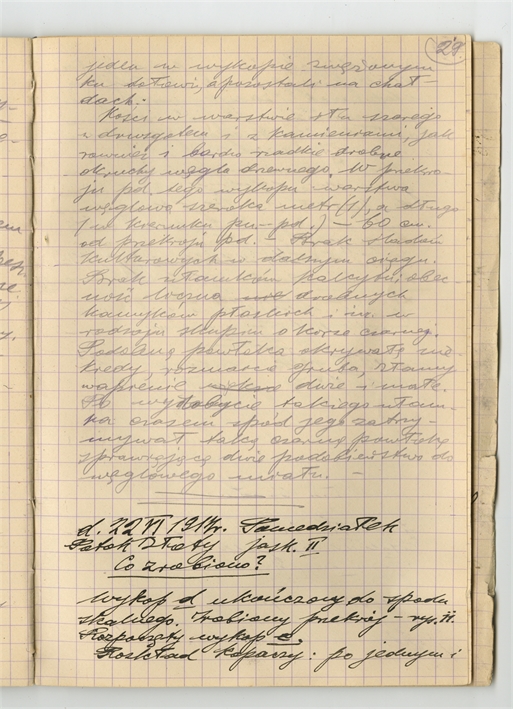 29
jedla w wykopie zwężonym
ku dołowi, a pozostali na
Kości w warstwie szarego
i z kamieniami, jak
również i bardzo rzadkie drobne
okruchy węgla drzewnego. W przekro-
ju pd. tego wykopu warstwa
węglowa szeroka metr (1), a długa
(w kierunku pn-pd.) – 60 cm.
od przekroju pd. – Brak śladów
kulturowych w dalszym ciągu.
Brak ułamków obec-
ność drobnych
kamyków płaskich i in. w
rodzaju skupim o korze czarnej.
Podobną powłoką okrywały nie-
kiedy, rozmaicie grube, złamy
wapienne duże i małe.
Po wydobycie takiego ułam-
ka czasem spód jego zatrzy-
mywał taką czarną powłokę
sprawiającą duże podobieństwo do
węglowego miału. –
d. 22 VI 1914r. Poniedziałek
Potok Złoty jask. II
Co zrobiono?
Wykop d ukończony do spodu
skalnego. Zrobiony przekrój – ryc. 11.
Rozpoczęty wykop e.
Rozkład kopaczy: po jednym i